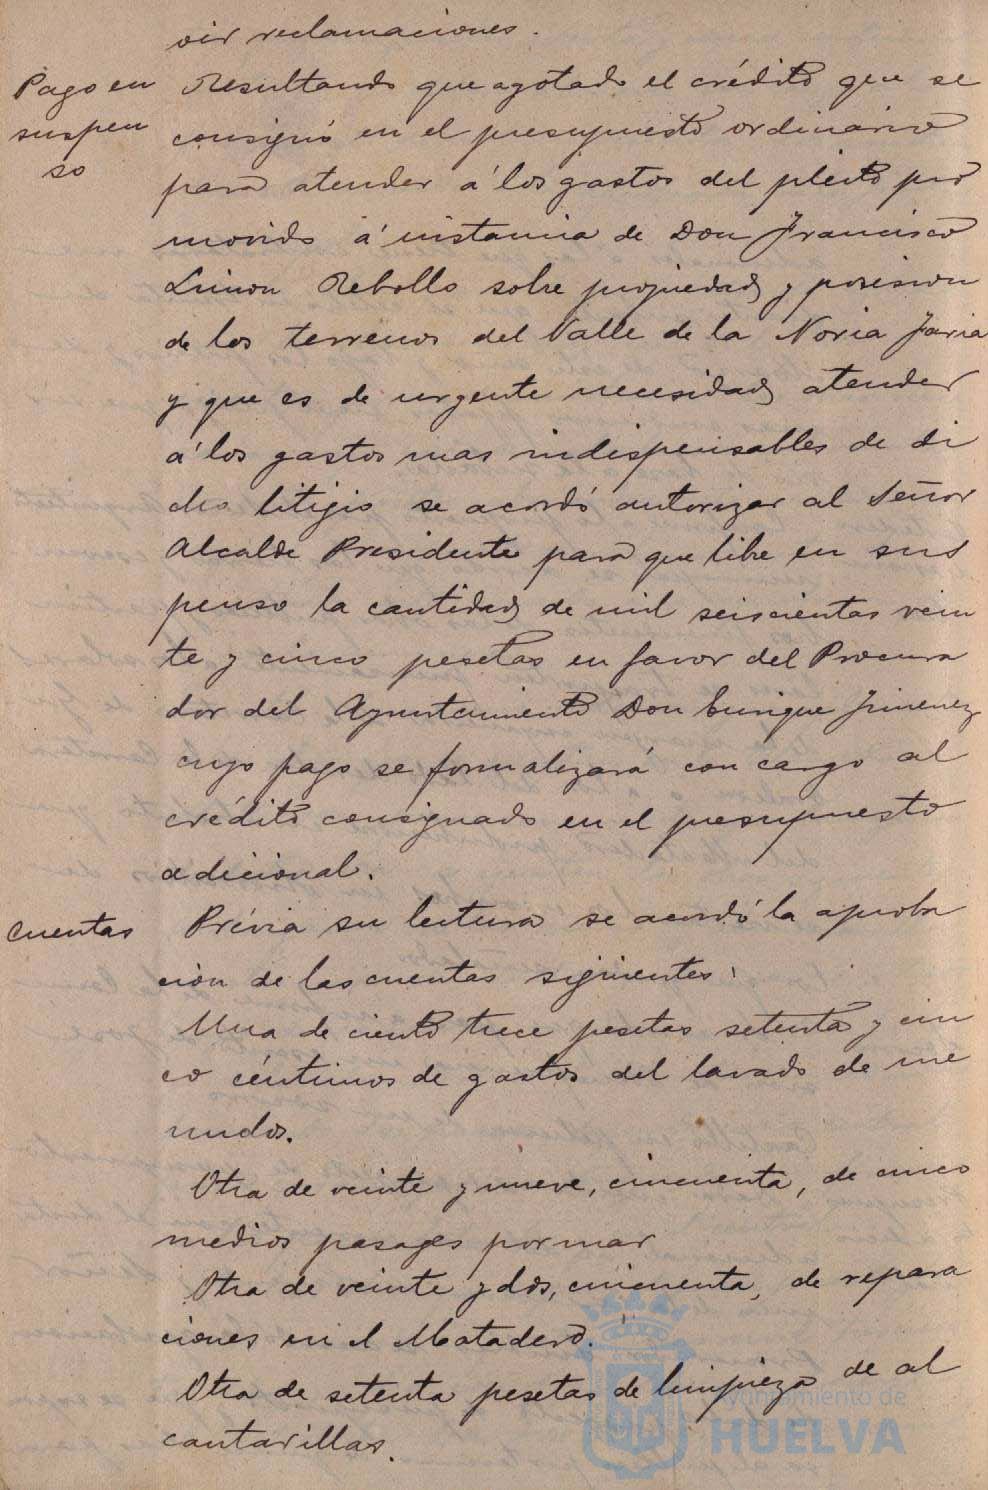 oir reclamaciones.
Pago en
suspen
so
Resultando que agotado el crédito que se
consignó en el presupuesto ordinario
para atender á los gastos del pleito pro
movido á instancia de Don Francisco
Limon Rebollo sobre propiedad y posesion
de los terrenos del Valle de la Noria
y que es de urgente necesidad atender
á los gastos mas indispensables de di
cho litigio se acordó autorizar al Señor
Alcalde Presidente para que libre en sus
penso la cantidad de mil seiscientas vein
te y cinco pesetas en favor del Procura
dor del Ayuntamiento Don Enrique Jimenez
cuyo pago se formalizará con cargo al
crédito consignado en el presupuesto
adicional.
Cuentas
Prévia su lectura se acordó la aproba
cion de las cuentas siguientes:
Una de ciento trece pesetas setenta y cin
co céntimos de gastos del lavado de me
nudos.
Otra de veinte y nueve, cincuenta, de cinco
medios pasages por mar
Otra de veinte y dos, cincuenta, de repara
ciones en el Matadero.
Otra de setenta pesetas de limpieza de al
cantarillas.
Ayuntamiento de
HUELVA